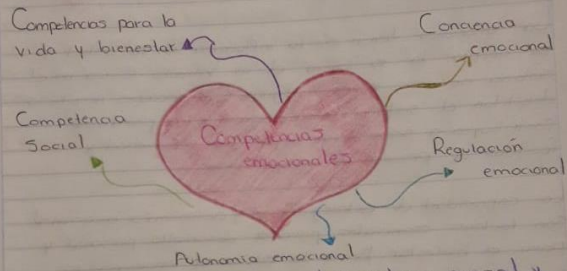 Competencias para la
vida y bienestar
Conciencia
emocional
Competencia
Social
Competencias
emocionales
Regulación
emocional
Autonomia emocional